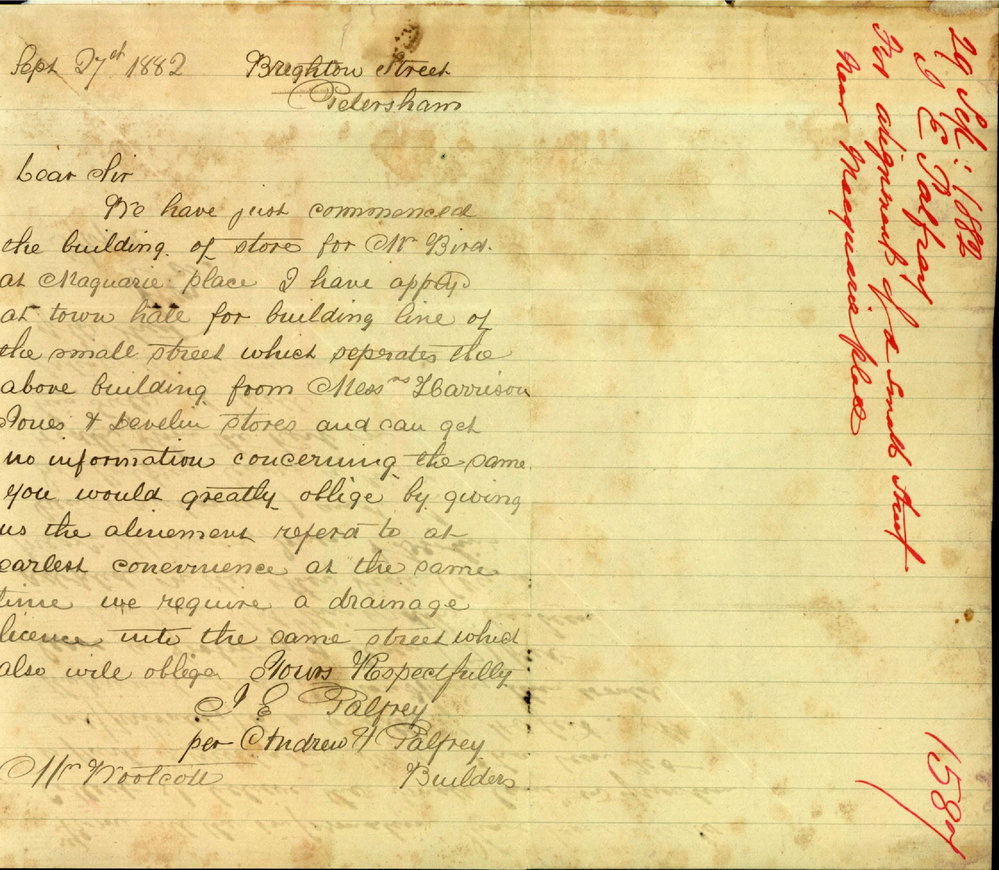 Sept 27st 1882 Brighton Street
Petersham
Dear Sir
We have just commenced
the building of stores for Mr Bird
at Maquarie place I have applyd
at town hale for building line of
the small street which seperates the
above building from Messrs Harrison
Jones & Develin stores and can get
no information concerning the same
you would greatly oblige by giving
us the alinement referd to at
earlest convenience at the same
time we require a drainage
licence into the same street which
also wile oblige Yours Respectfully
J E Palfrey
per Andrew H Palfrey
Mr Woolcott Builders
29 Sep: 1882
J E Palfrey
For alignment of a small Street
near Macquarie place
1587